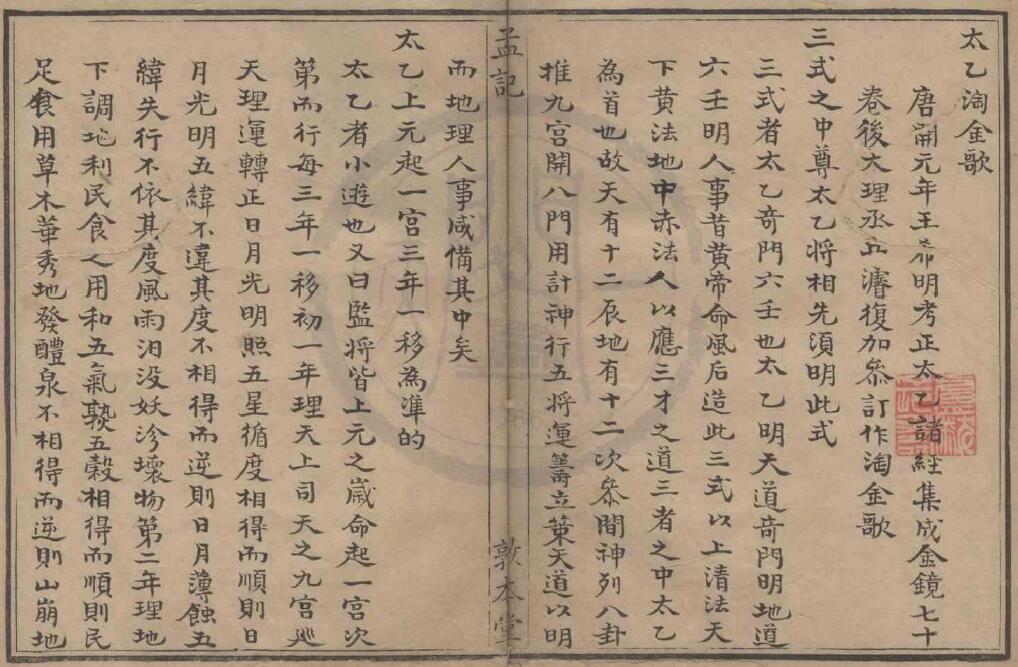 太乙淘金歌
唐開元年王希明考正太乙諸經集成金鏡七十
卷後大理丞丘濬復加叅訂作淘金歌
三式之中尊太乙将相先須明此式
三式者太乙奇門六壬也太乙明天道奇門明地道
六壬明人事昔黄帝命風后造此三式以上清法天
下黄法地中赤法人以應三才之道三者之中太乙
為首也故天有十二辰地有十二次叅間神列八卦
推九宮開八門用計神行五将運籌立策天道以明
孟記
敦本堂
而地理人事咸備其中矣
太乙上元起一宮三年一移為準的
太乙者小遊也又曰監将皆上元之歲命起一宮次
第而行每三年一移初一年理天上司天之九宮巡
天理運轉正日月光明照五星循度相得而順則日
月光明五緯不違其度不相得而逆則日月薄蝕五
緯失行不依其度風雨汨没妖沴壞物第二年理地
下調地利民食人用和五氣㷼五穀相得而順則民
足食用草木華秀地發醴泉不相得而逆則山崩地